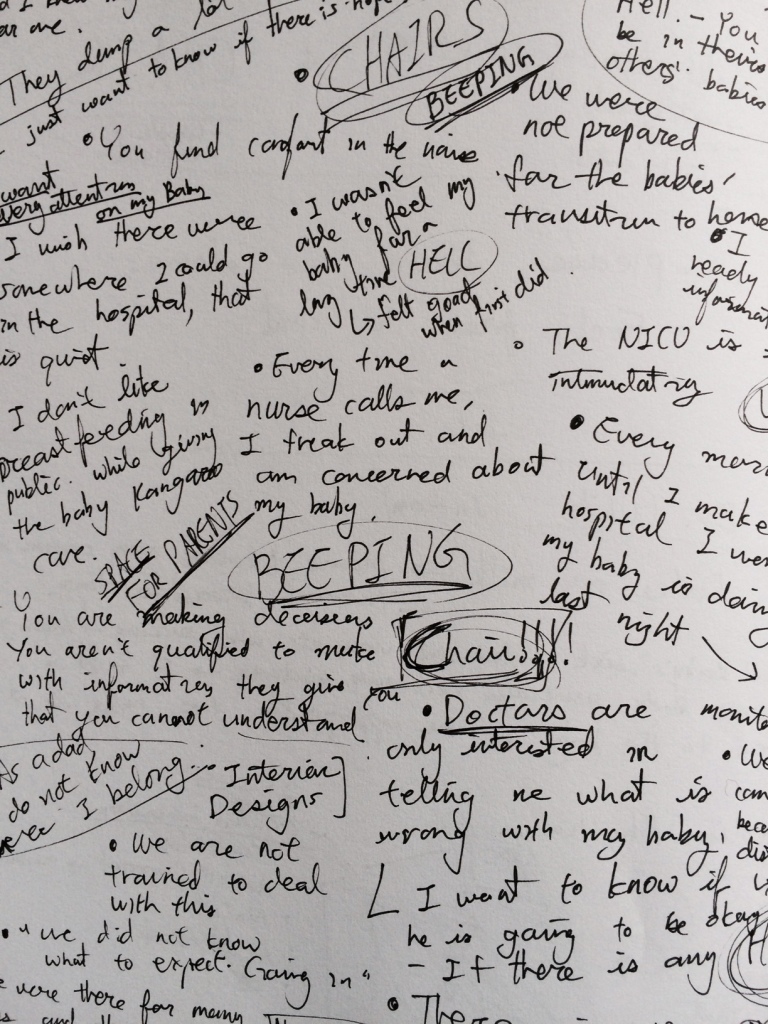 They dump a lot
just want to know if there is hope
CHAIRS
BEEPING
Hell. - You
be in
others' babies
• We were
not prepared
for the babies'
transition to home
• You find comfort in the noise
want
every attention
on my Baby
I wish there were
somewhere I could go
in the hospital, that
is quiet.
• I wasn't
able to feel my
baby for a
long time
↳ felt good
when first did.
HELL
• I
ready
informat
• The NICU is
intimidating
I don't like
breastfeeding in
public. while giving
the baby Kangaroo
care.
• Every time a
nurse calls me,
I freak out and
am concerned about
my baby.
• Every morn
until I make
hospital I wo
my baby is doin
last night
SPACE
FOR PARENTS
BEEPING
You are making decisions
You aren't qualified to make
with information they give you
that you cannot understand
Chair!!!!
As a dad
do not know
where I belong...
• Interior
Designs
• Doctors are
only interested in
telling me what is
wrong with my baby.
I want to know if
he is going to be okay
- If there is any
monito
• We
com
beca
• We are not
trained to deal
with this
• "we did not know
what to expect. Going in"
were there for many
• There